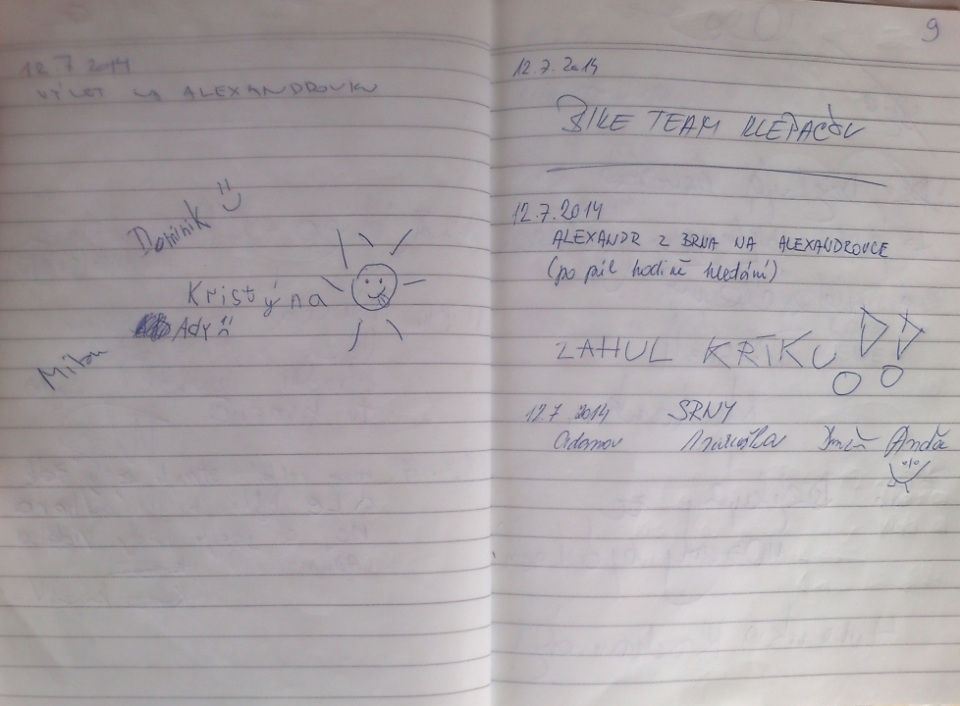 12.7 2014
VÝLET NA ALEXANDROVKU
Dominik
Kristýna
Ady
Milan
9
12.7.2014
BIKE TEAM KLEPAČOV
12.7.2014
ALEXANDR Z BRNA NA ALEXANDROVCE
(po půl hodině hledání)
ZAHUL KRTKU !!
12.7 2014 SRNY
Adamov Anďa